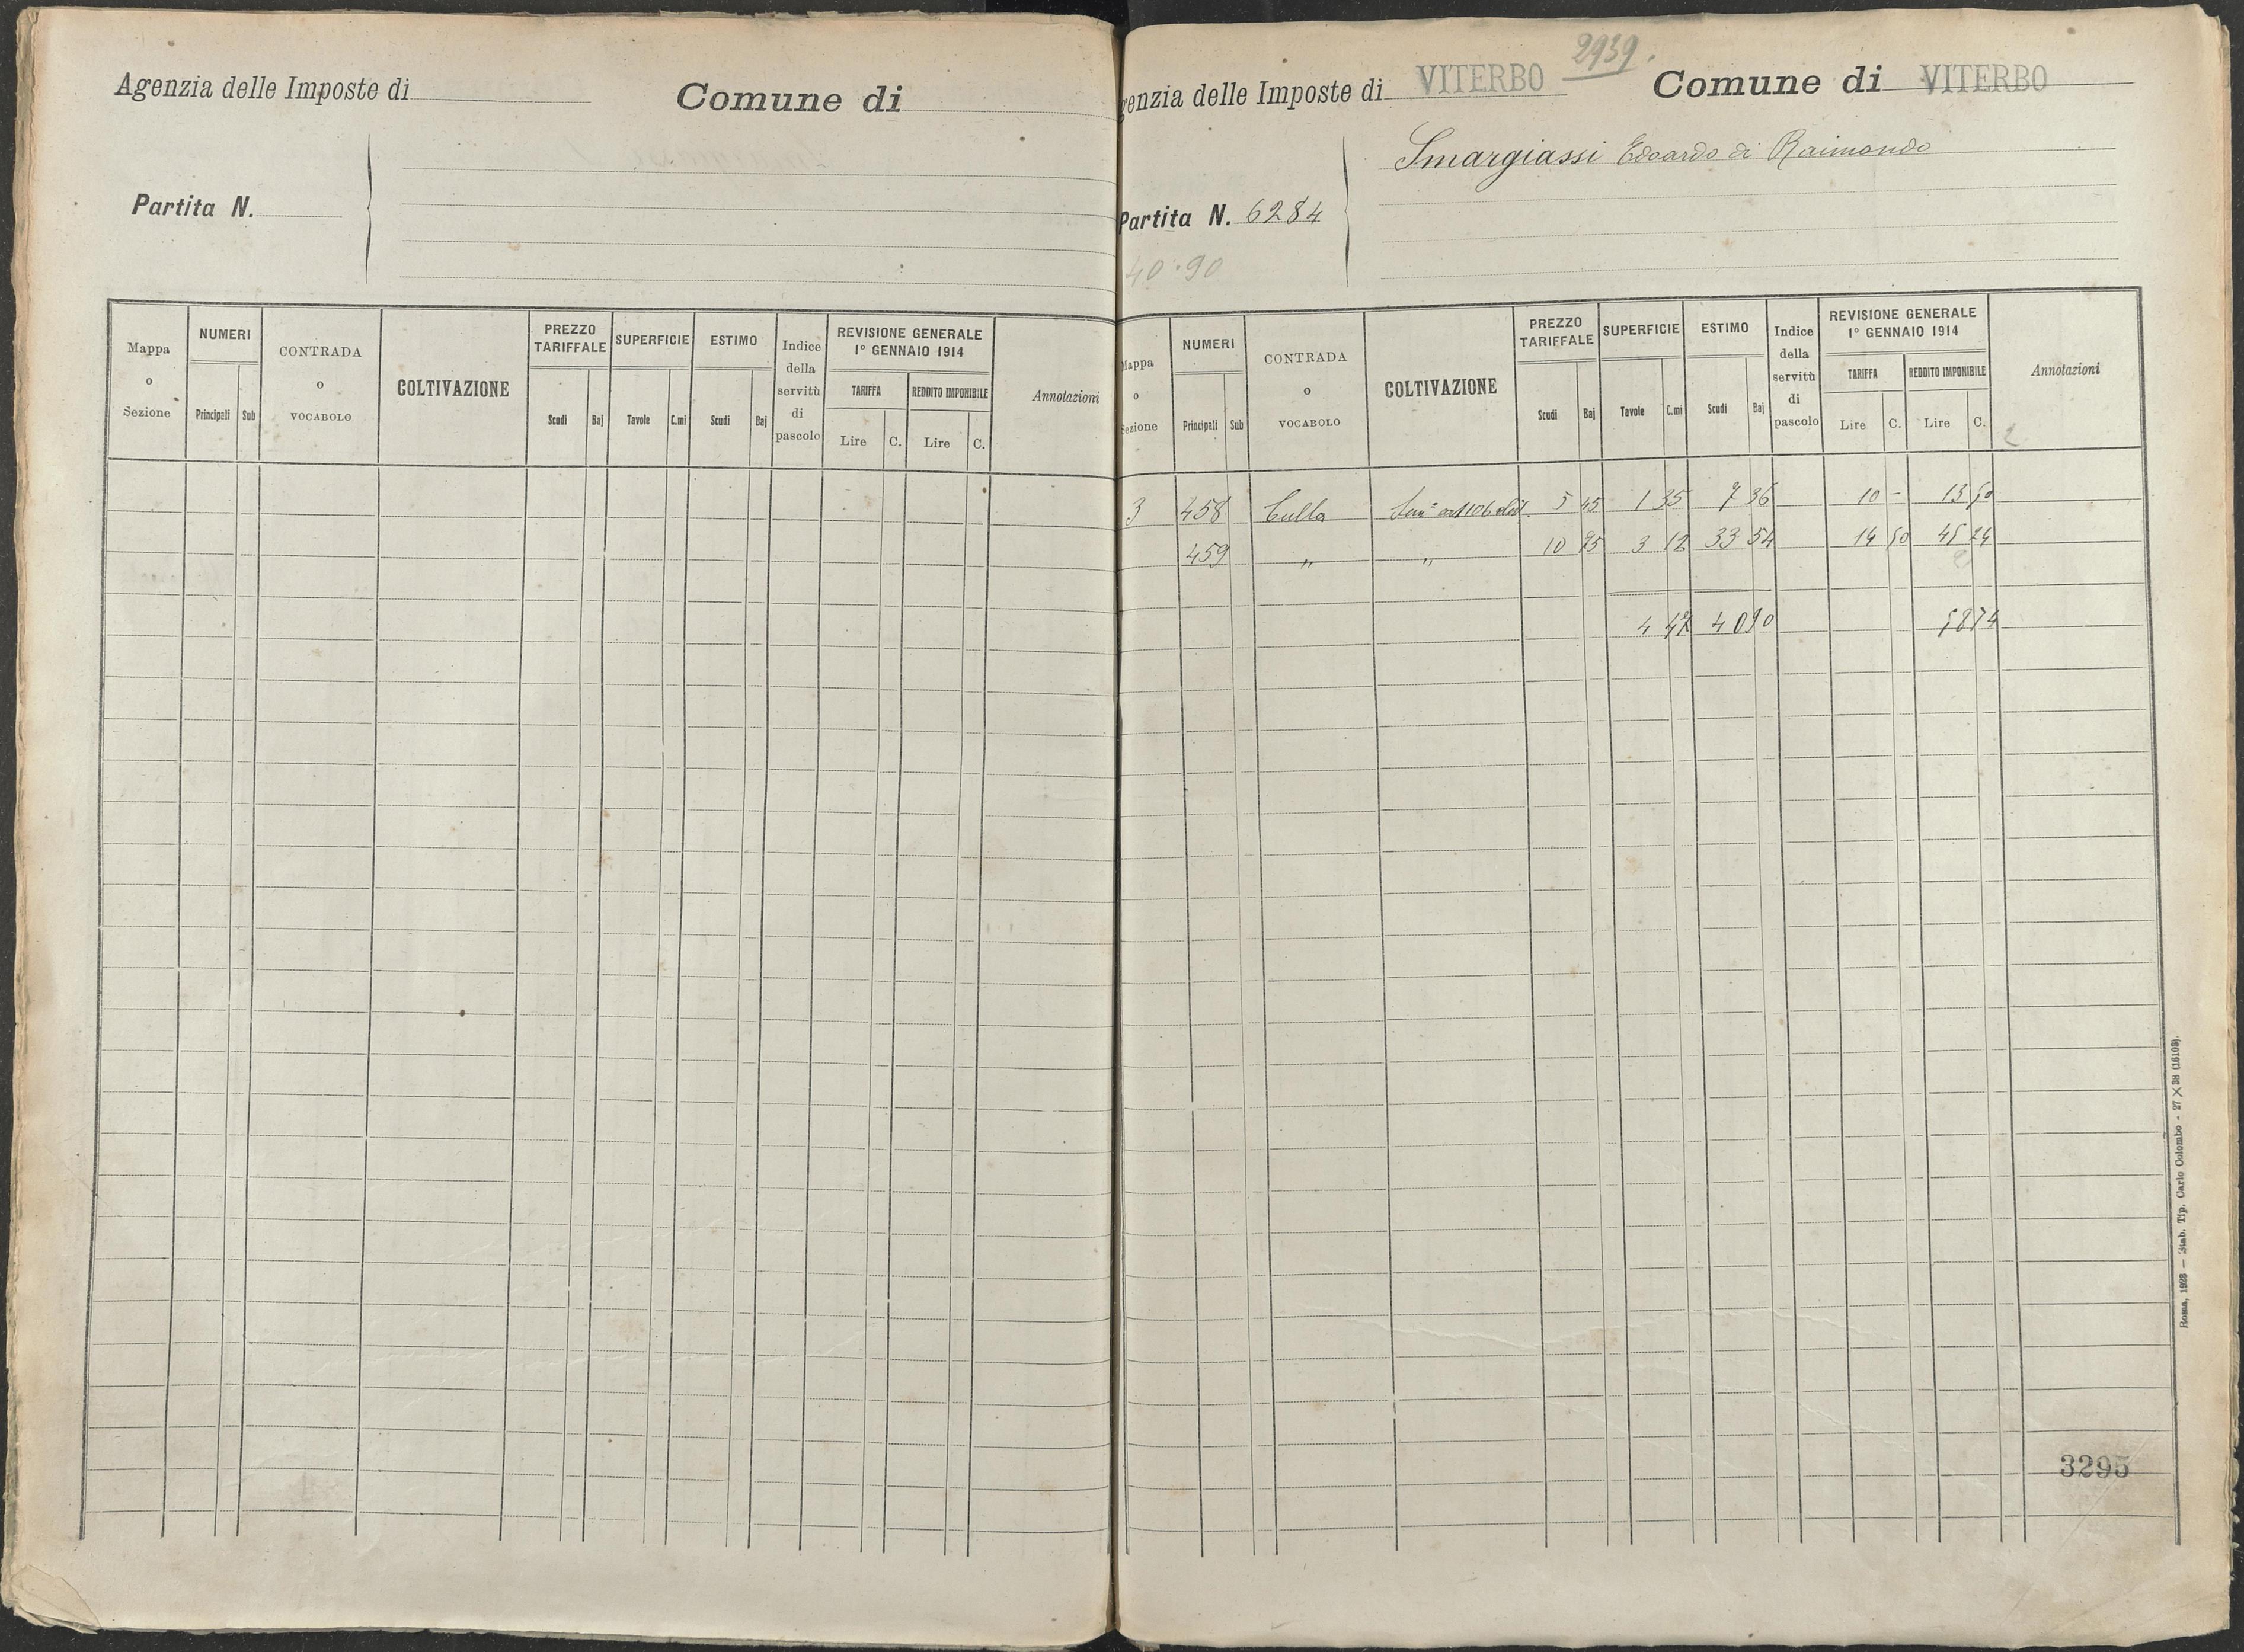 Agenzia delle Imposte di
Comune di
Partita N.
Mappa o Sezione
NUMERI
Principali Sub
CONTRADA o VOCABOLO
COLTIVAZIONE
PREZZO TARIFFALE
Scudi Baj
SUPERFICIE
Tavole C.mi
ESTIMO
Scudi Baj
Indice della servitù di pascolo
REVISIONE GENERALE
1° GENNAIO 1914
TARIFFA
Lire C.
REDDITO IMPONIBILE
Lire C.
Annotazioni
2939.
genzia delle Imposte di VITERBO Comune di VITERBO
Smargiassi Edoardo di Raimondo
Partita N. 6284
40.90
Mappa o Sezione
NUMERI
Principali Sub
CONTRADA o VOCABOLO
COLTIVAZIONE
PREZZO TARIFFALE
Scudi Baj
SUPERFICIE
Tavole C.mi
ESTIMO
Scudi Baj
Indice della servitù di pascolo
REVISIONE GENERALE
1° GENNAIO 1914
TARIFFA
Lire C.
REDDITO IMPONIBILE
Lire C.
Annotazioni
3 458 Culla 5 45 1 35 7 36 10 - 13 50
459 " " 10 75 3 12 33 54 14 50 45 24
4 47 40 90 58 74
3295
Roma, 1923 — Stab. Tip. Carlo Colombo - 27 X 38 (16103).